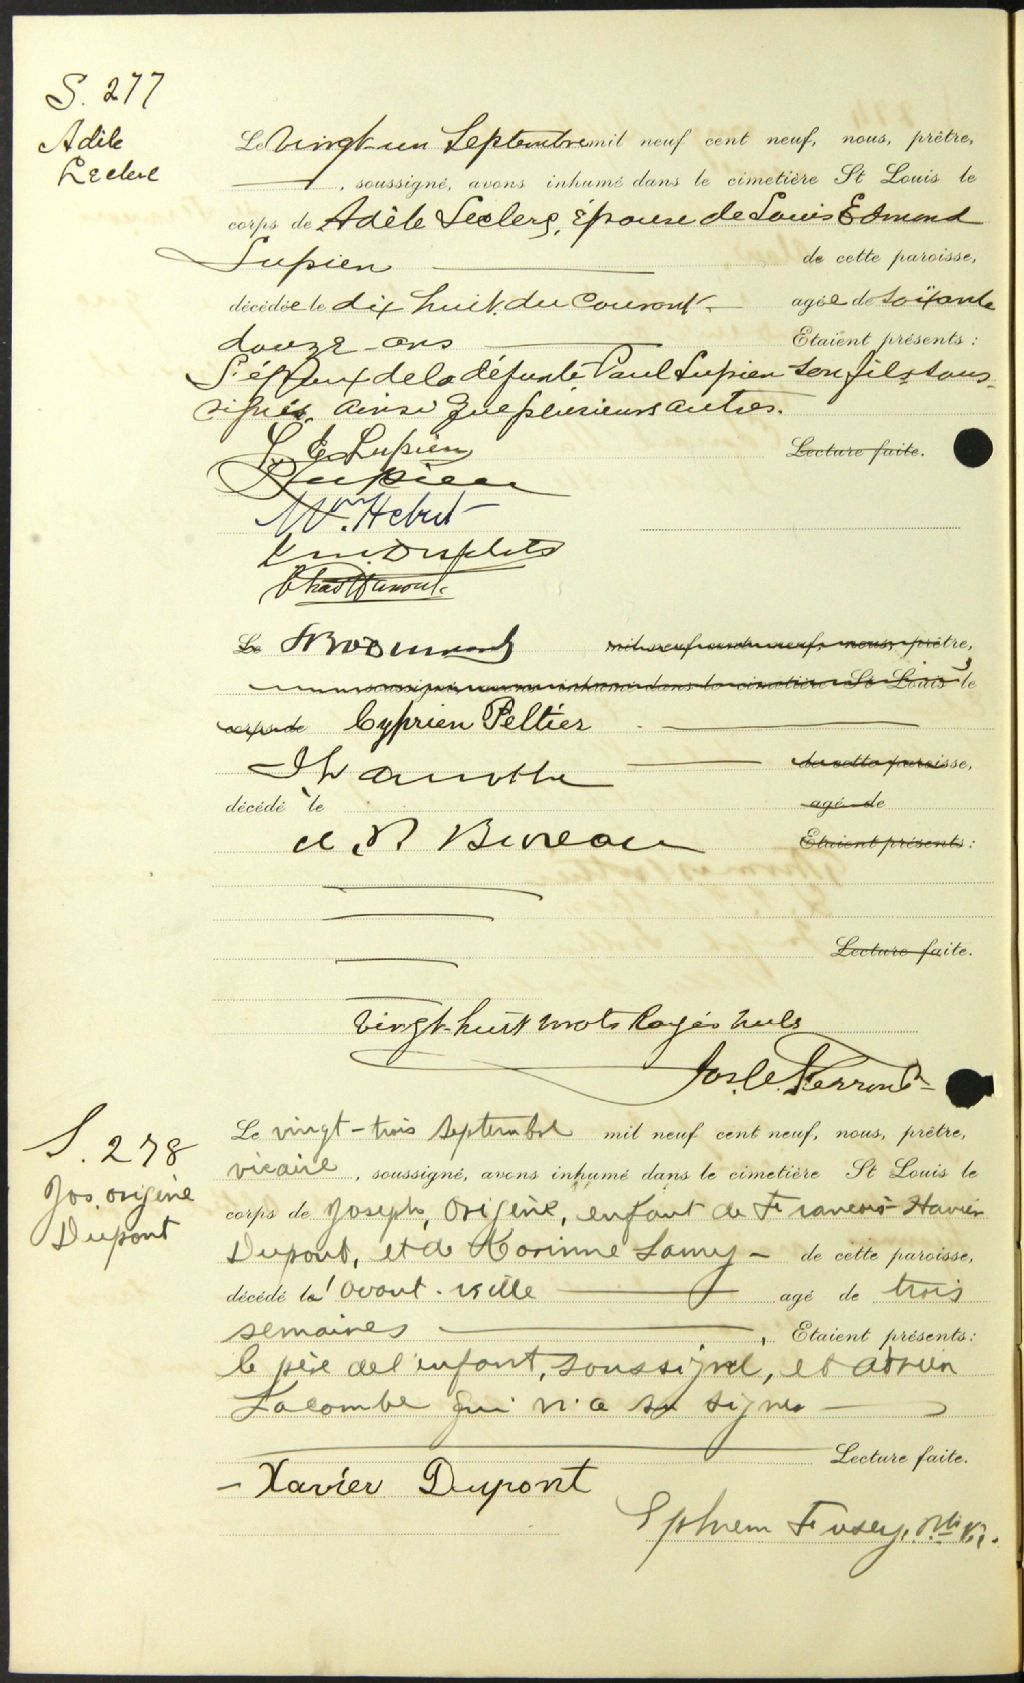 S. 277
Adèle
Leclerc
Le vingt-un Septembre mil neuf cent neuf, nous, prêtre,
, soussigné, avons inhumé dans le cimetière St Louis le
corps de Adèle Leclerc, épouse de Louis Edmond
Lupien de cette paroisse,
décédée le dix huit du courant. agée de soixante
douze ans Etaient présents :
L'époux de la défunte Paul Lupien son fils, sous-
signés, ainsi que plusieurs autres.
L. E. Lupien Lecture faite.
Lupien
Wm. Hebert
Le mil neuf cent neuf, nous, prêtre,
soussigné, avons inhumé dans le cimetière St Louis le
corps de Cyprien Peltier
de cette paroisse,
décédé le agé de
Bureau Etaient présents :
Lecture faite.
Vingt-huit mots rayés nuls
Jos. Ferron
S. 278
Jos. Origène
Dupont
Le vingt-trois septembre mil neuf cent neuf, nous, prêtre,
vicaire, soussigné, avons inhumé dans le cimetière St Louis le
corps de Joseph, Origène, enfant de François-Xavier
Dupont, et de Korinne Lamy - de cette paroisse,
décédé l'avant-veille agé de trois
semaines, Etaient présents :
le père de l'enfant, soussigné, et Adrien
Lacombe qui n'a su signer
Lecture faite.
- Xavier Dupont
Ephrem Fusey, Ptre Vic.